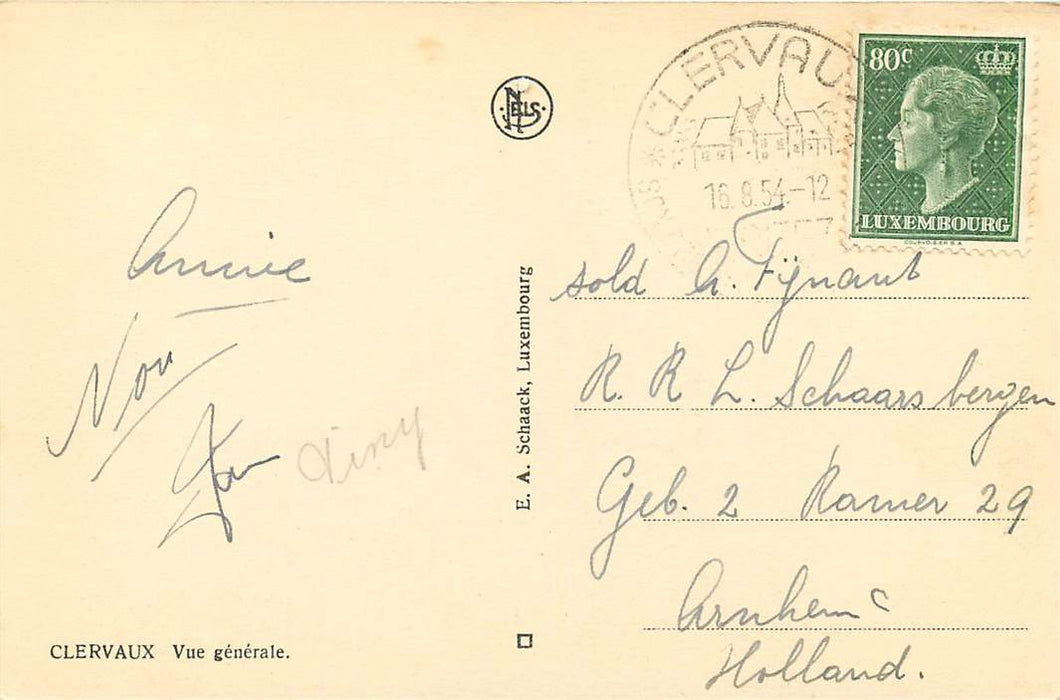 Annie
Non
Jan
Tiny
CLERVAUX Vue générale.
NELS
E. A. Schaack, Luxembourg
CLERVAUX
16.8.54.-12
80c
LUXEMBOURG
COURVOISIER S.A.
sold A. Fijnaut
R. R L. Schaarsbergen
Geb. 2 Kamer 29
Arnhem
Holland.